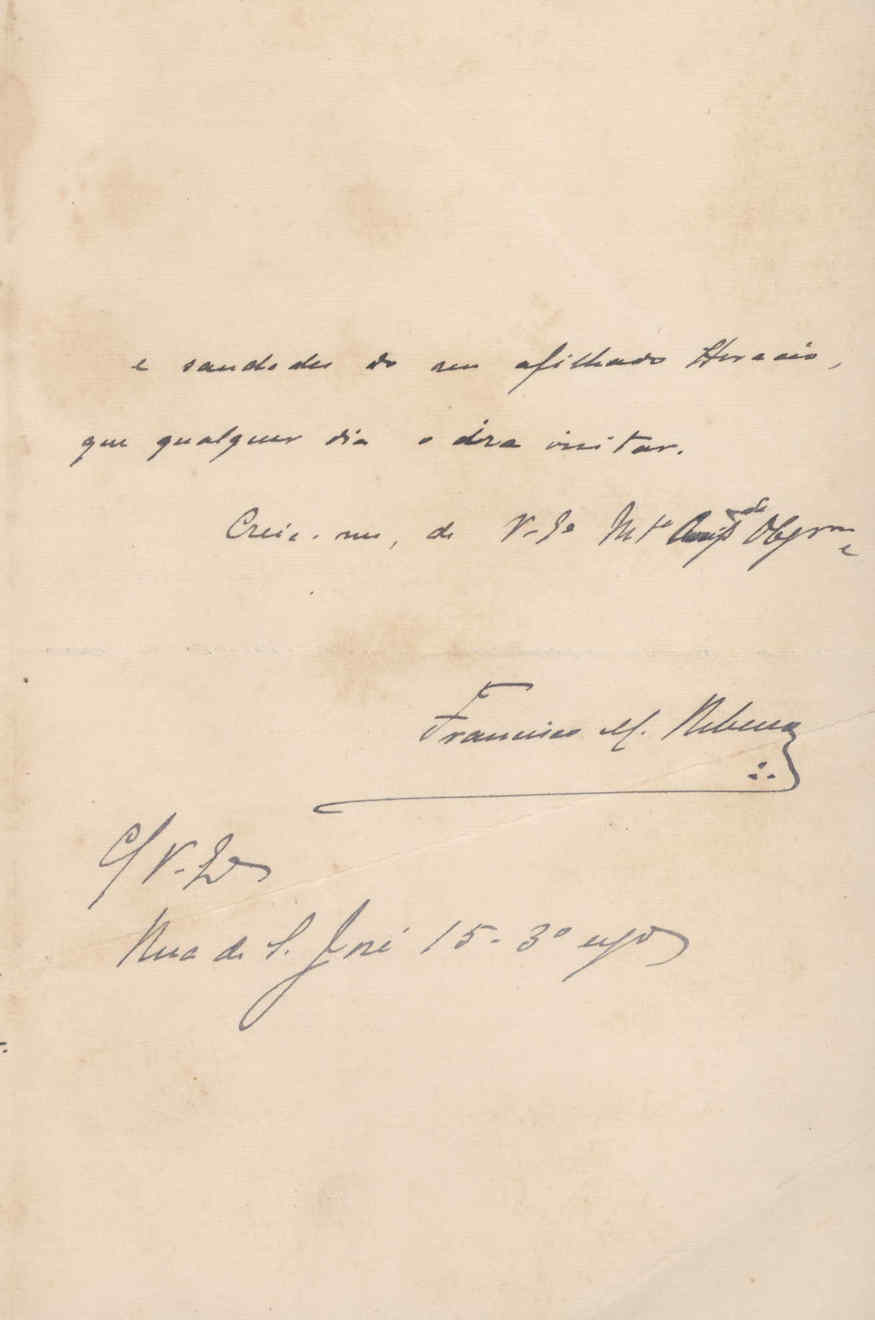 e saudades do seu afilhado Horacio,
que qualquer dia o irá visitar.
Creia-me, de V. Ex.ª Mt.º Amigo
Francisco M. Ribeiro
C/ V. Ex.ª
Rua de S. José 15-3º esqº